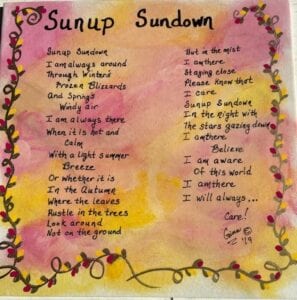 Sunup Sundown
Sunup Sundown
I am always around
Through Winters
Frozen Blizzards
And Springs
Windy air
I am always there
When it is hot and
Calm
With a light summer
Breeze
Or whether it is
In the Autumn
Where the leaves
Rustle in the trees
Look around
Not on the ground
But in the mist
I am there
Staying close
Please Know that
I care
Sunup Sundown
In the Night with
The Stars gazing down
I am there
Believe
I am aware
Of this world
I am there
I will always...
Care!
©
'19